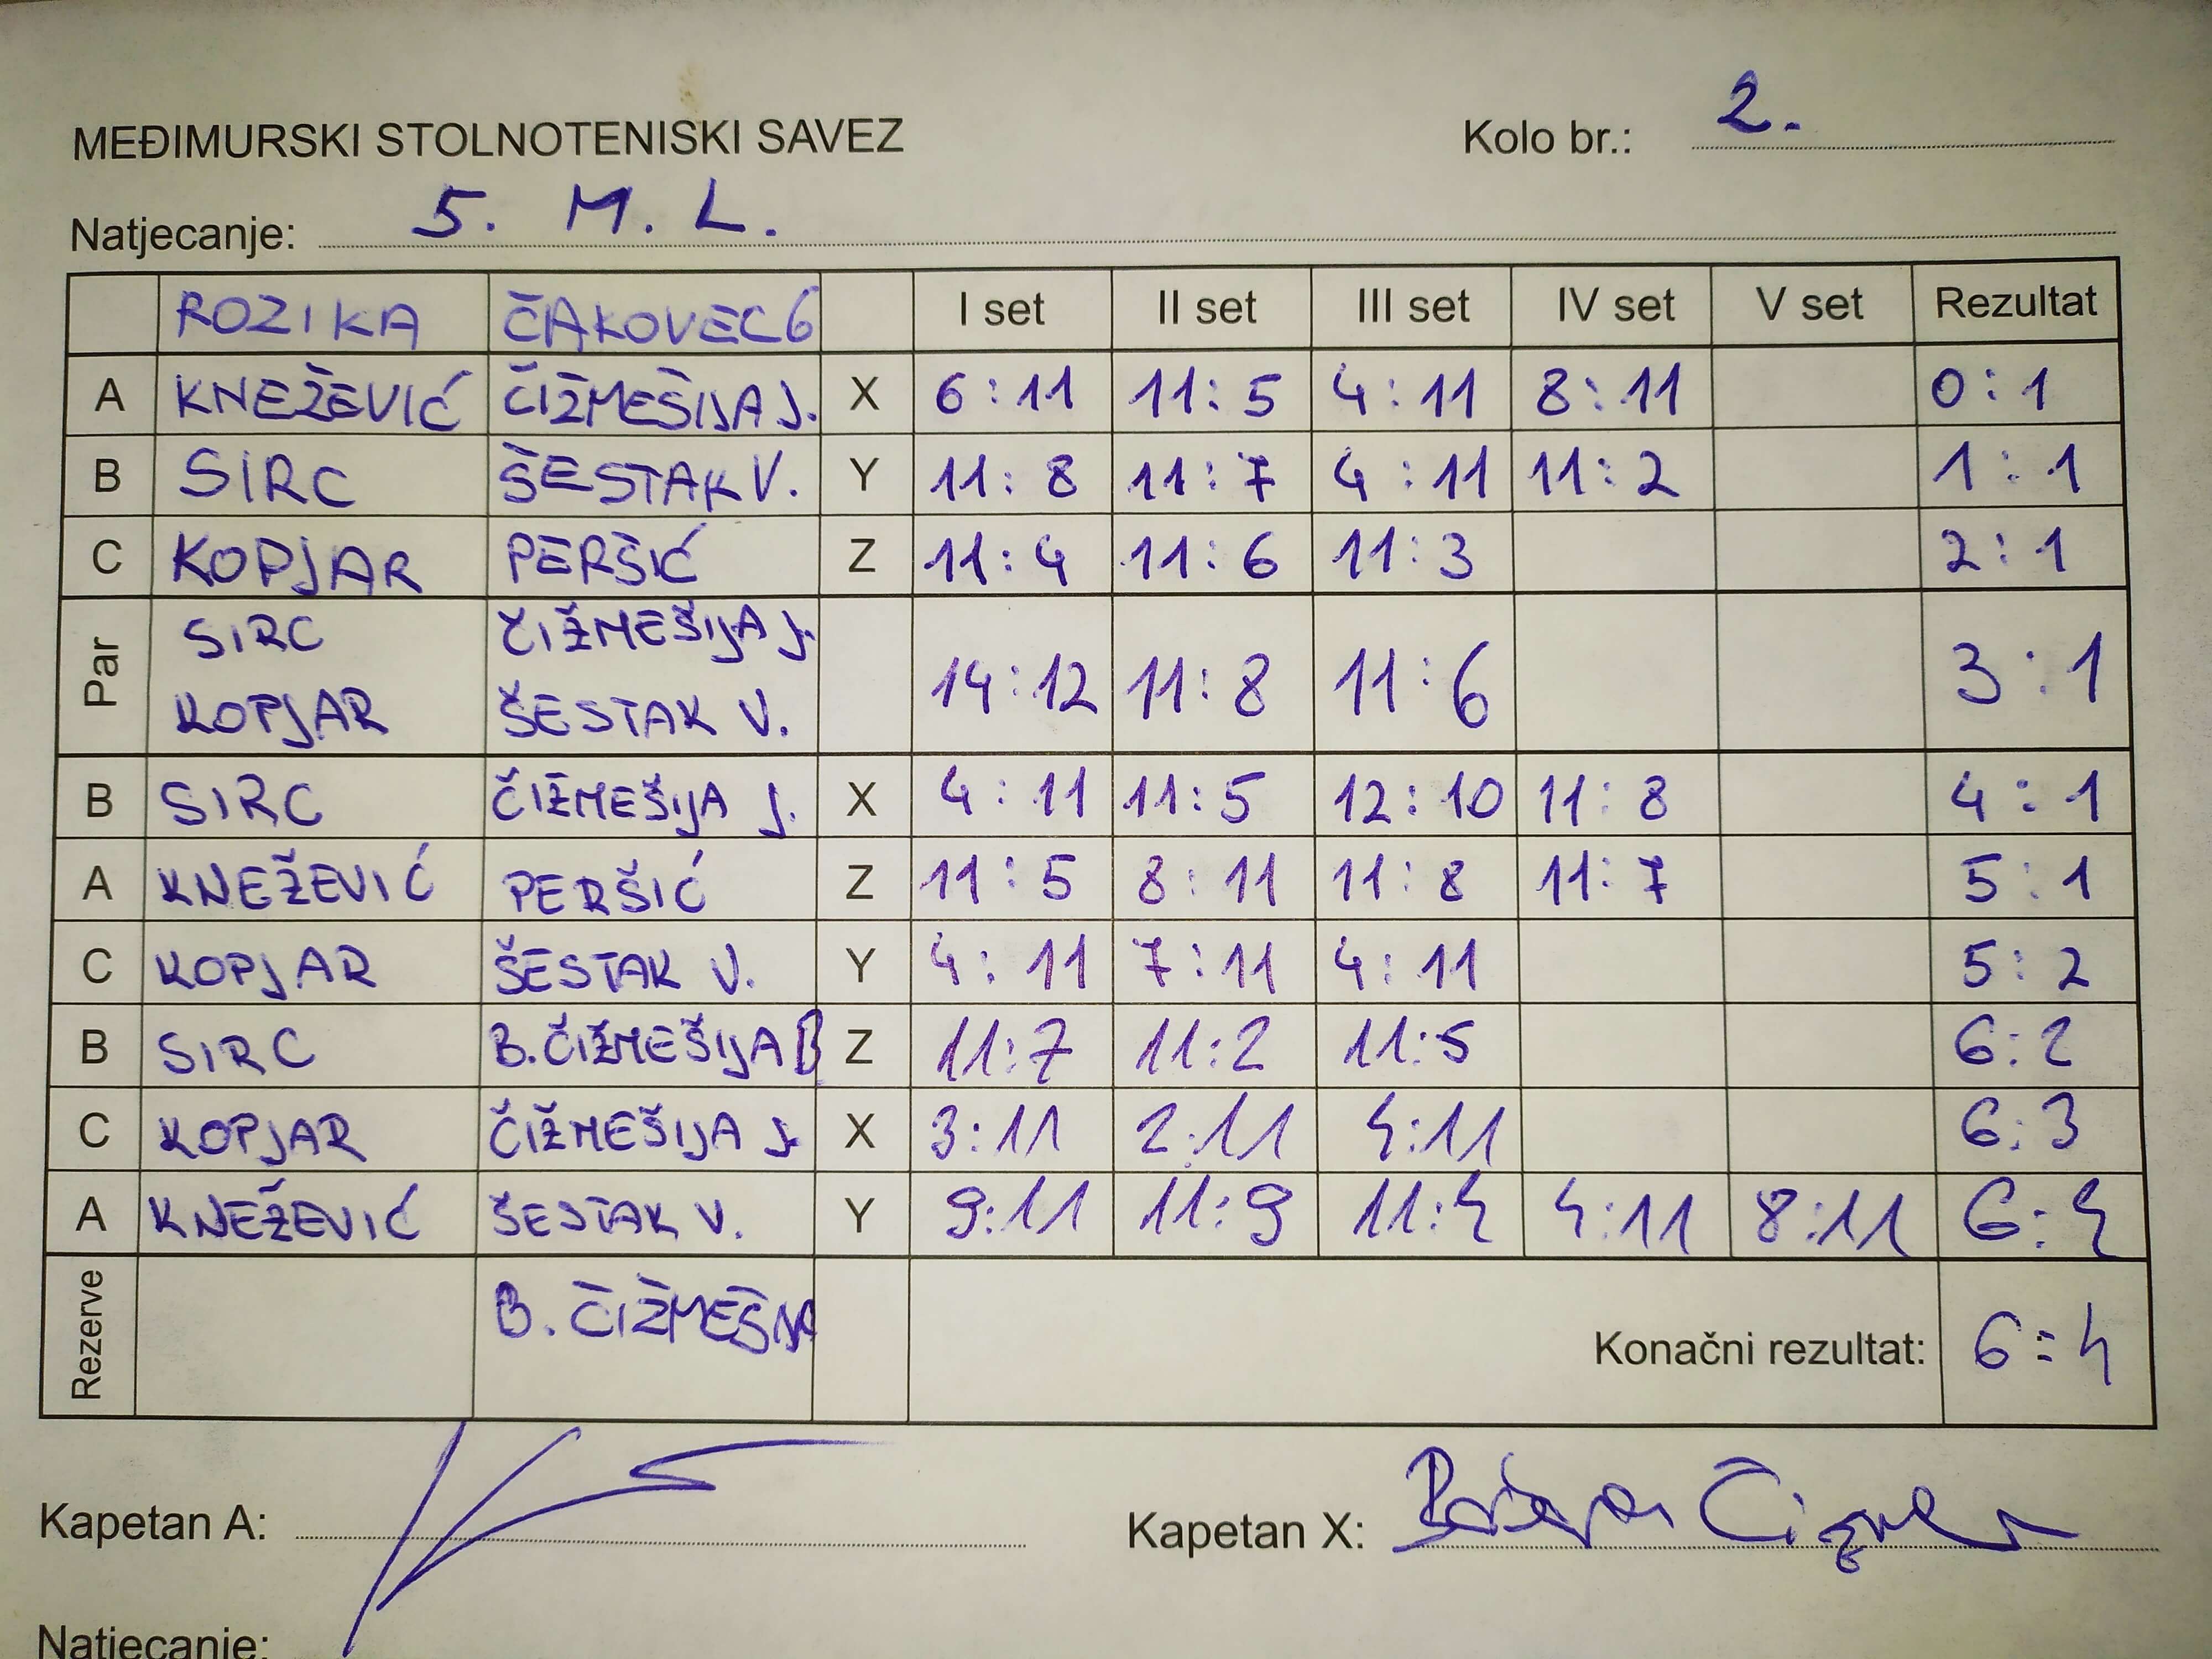 MEĐIMURSKI STOLNOTENISKI SAVEZ Kolo br.: 2.
Natjecanje: 5. M. L.
ROZIKA ČAKOVEC 6 I set II set III set IV set V set Rezultat
A KNEŽEVIĆ ČIŽMEŠIJA J. X 6:11 11:5 4:11 8:11 0:1
B SIRC ŠESTAK V. Y 11:8 11:7 4:11 11:2 1:1
C KOPJAR PERŠIĆ Z 11:4 11:6 11:3 2:1
Par SIRC ČIŽMEŠIJA J. 14:12 11:8 11:6 3:1
KOPJAR ŠESTAK V.
B SIRC ČIŽMEŠIJA J. X 4:11 11:5 12:10 11:8 4:1
A KNEŽEVIĆ PERŠIĆ Z 11:5 8:11 11:8 11:7 5:1
C KOPJAR ŠESTAK V. Y 4:11 7:11 4:11 5:2
B SIRC B. ČIŽMEŠIJA B Z 11:7 11:2 11:5 6:2
C KOPJAR ČIŽMEŠIJA J. X 3:11 2:11 4:11 6:3
A KNEŽEVIĆ ŠESTAK V. Y 9:11 11:9 11:4 4:11 8:11 6:4
Rezerve B. ČIŽMEŠIJA Konačni rezultat: 6:4
Kapetan A: Kapetan X:
Natjecanje: